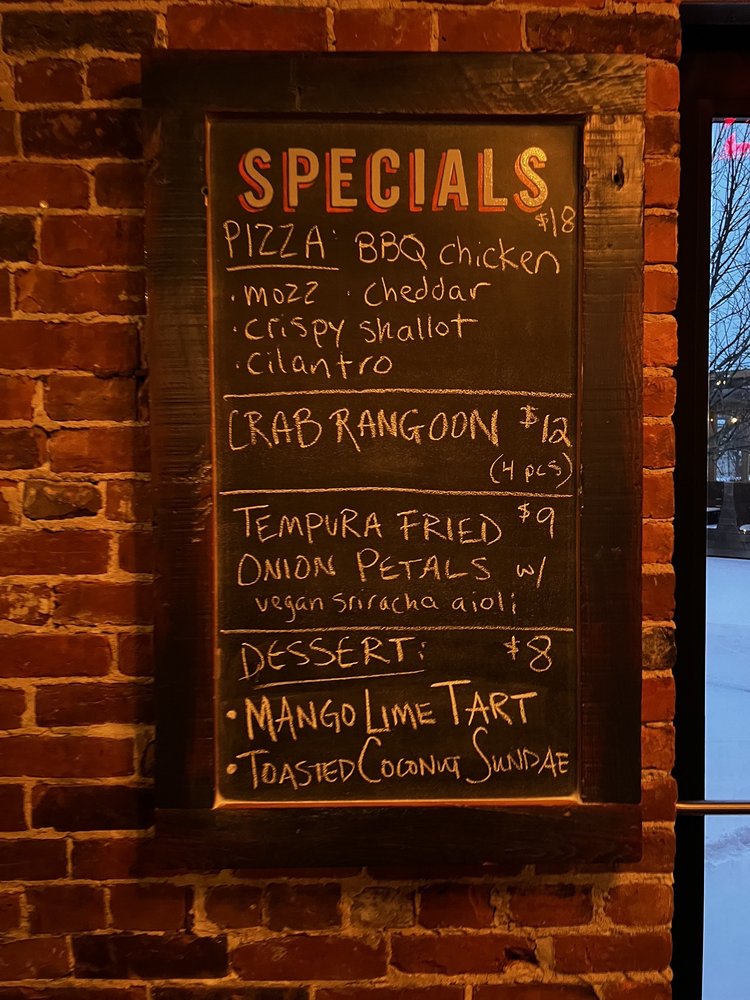 SPECIALS
$18
PIZZA: BBQ chicken
· mozz · cheddar
· crispy shallot
· cilantro
CRAB RANGOON $12
(4 pcs)
TEMPURA FRIED $9
ONION PETALS w/
vegan sriracha aioli
DESSERT: $8
· MANGO LIME TART
· TOASTED COCONUT SUNDAE